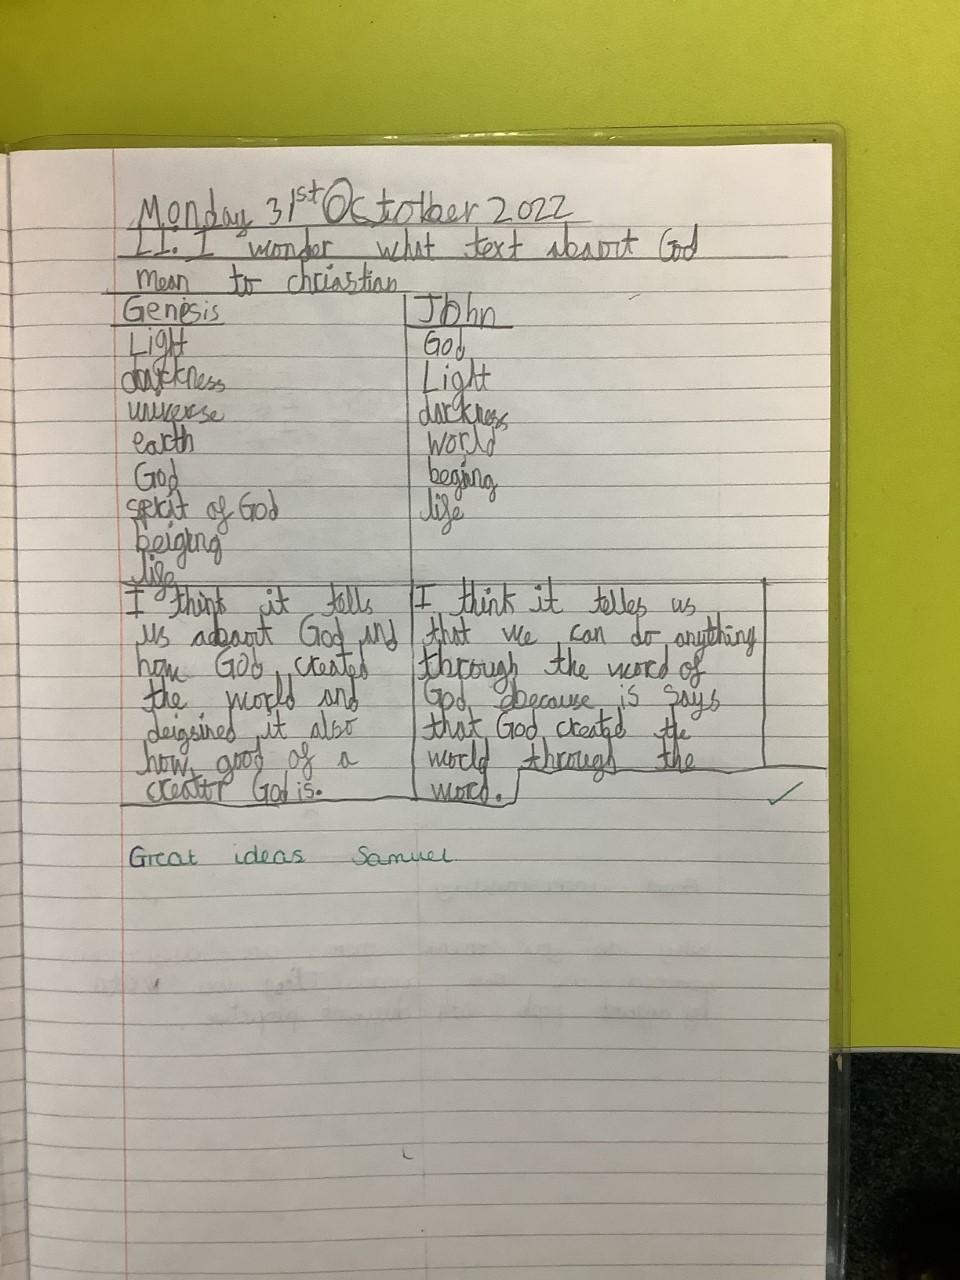 Monday 31st October 2022
LI: I wonder what text abaout God
mean to chriastian
Genesis
Light
darkness
universe
earth
God
spirit of God
beiging
life
I think it tells
us adaout God and
how God created
the world and
deigsined it also
how good of a
creator God is.
John
God
Light
darkness
world
beging
life
I think it telles us
that we can do anything
through the word of
God because is says
that God created the
world through the
word.
Great ideas Samuel